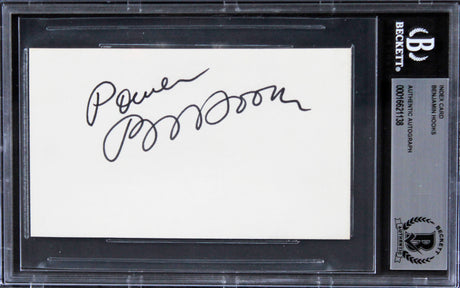 Power
B Hooks
BECKETT®
INDEX CARD
BENJAMIN HOOKS
AUTHENTIC AUTOGRAPH
00016621138
BECKETT
AUTHENTIC